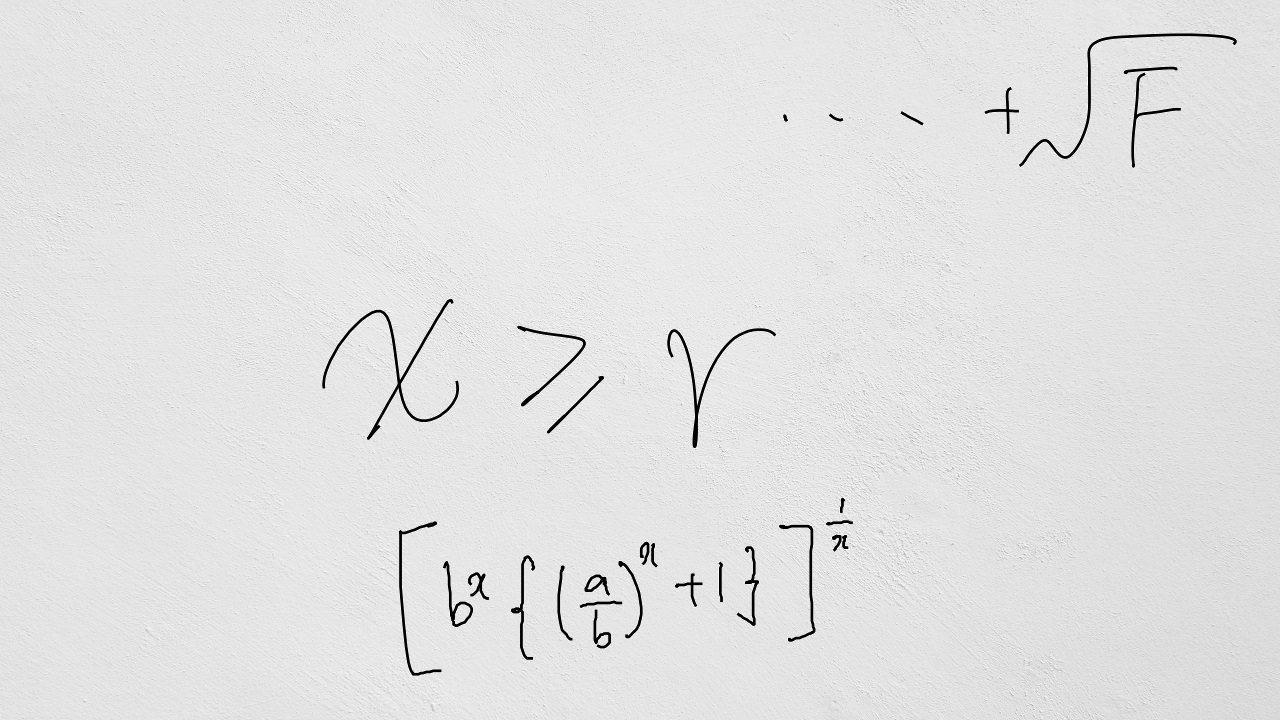 ... + √F
x ⩾ r
[b^x {(a/b)^x + 1}]^(1/x)